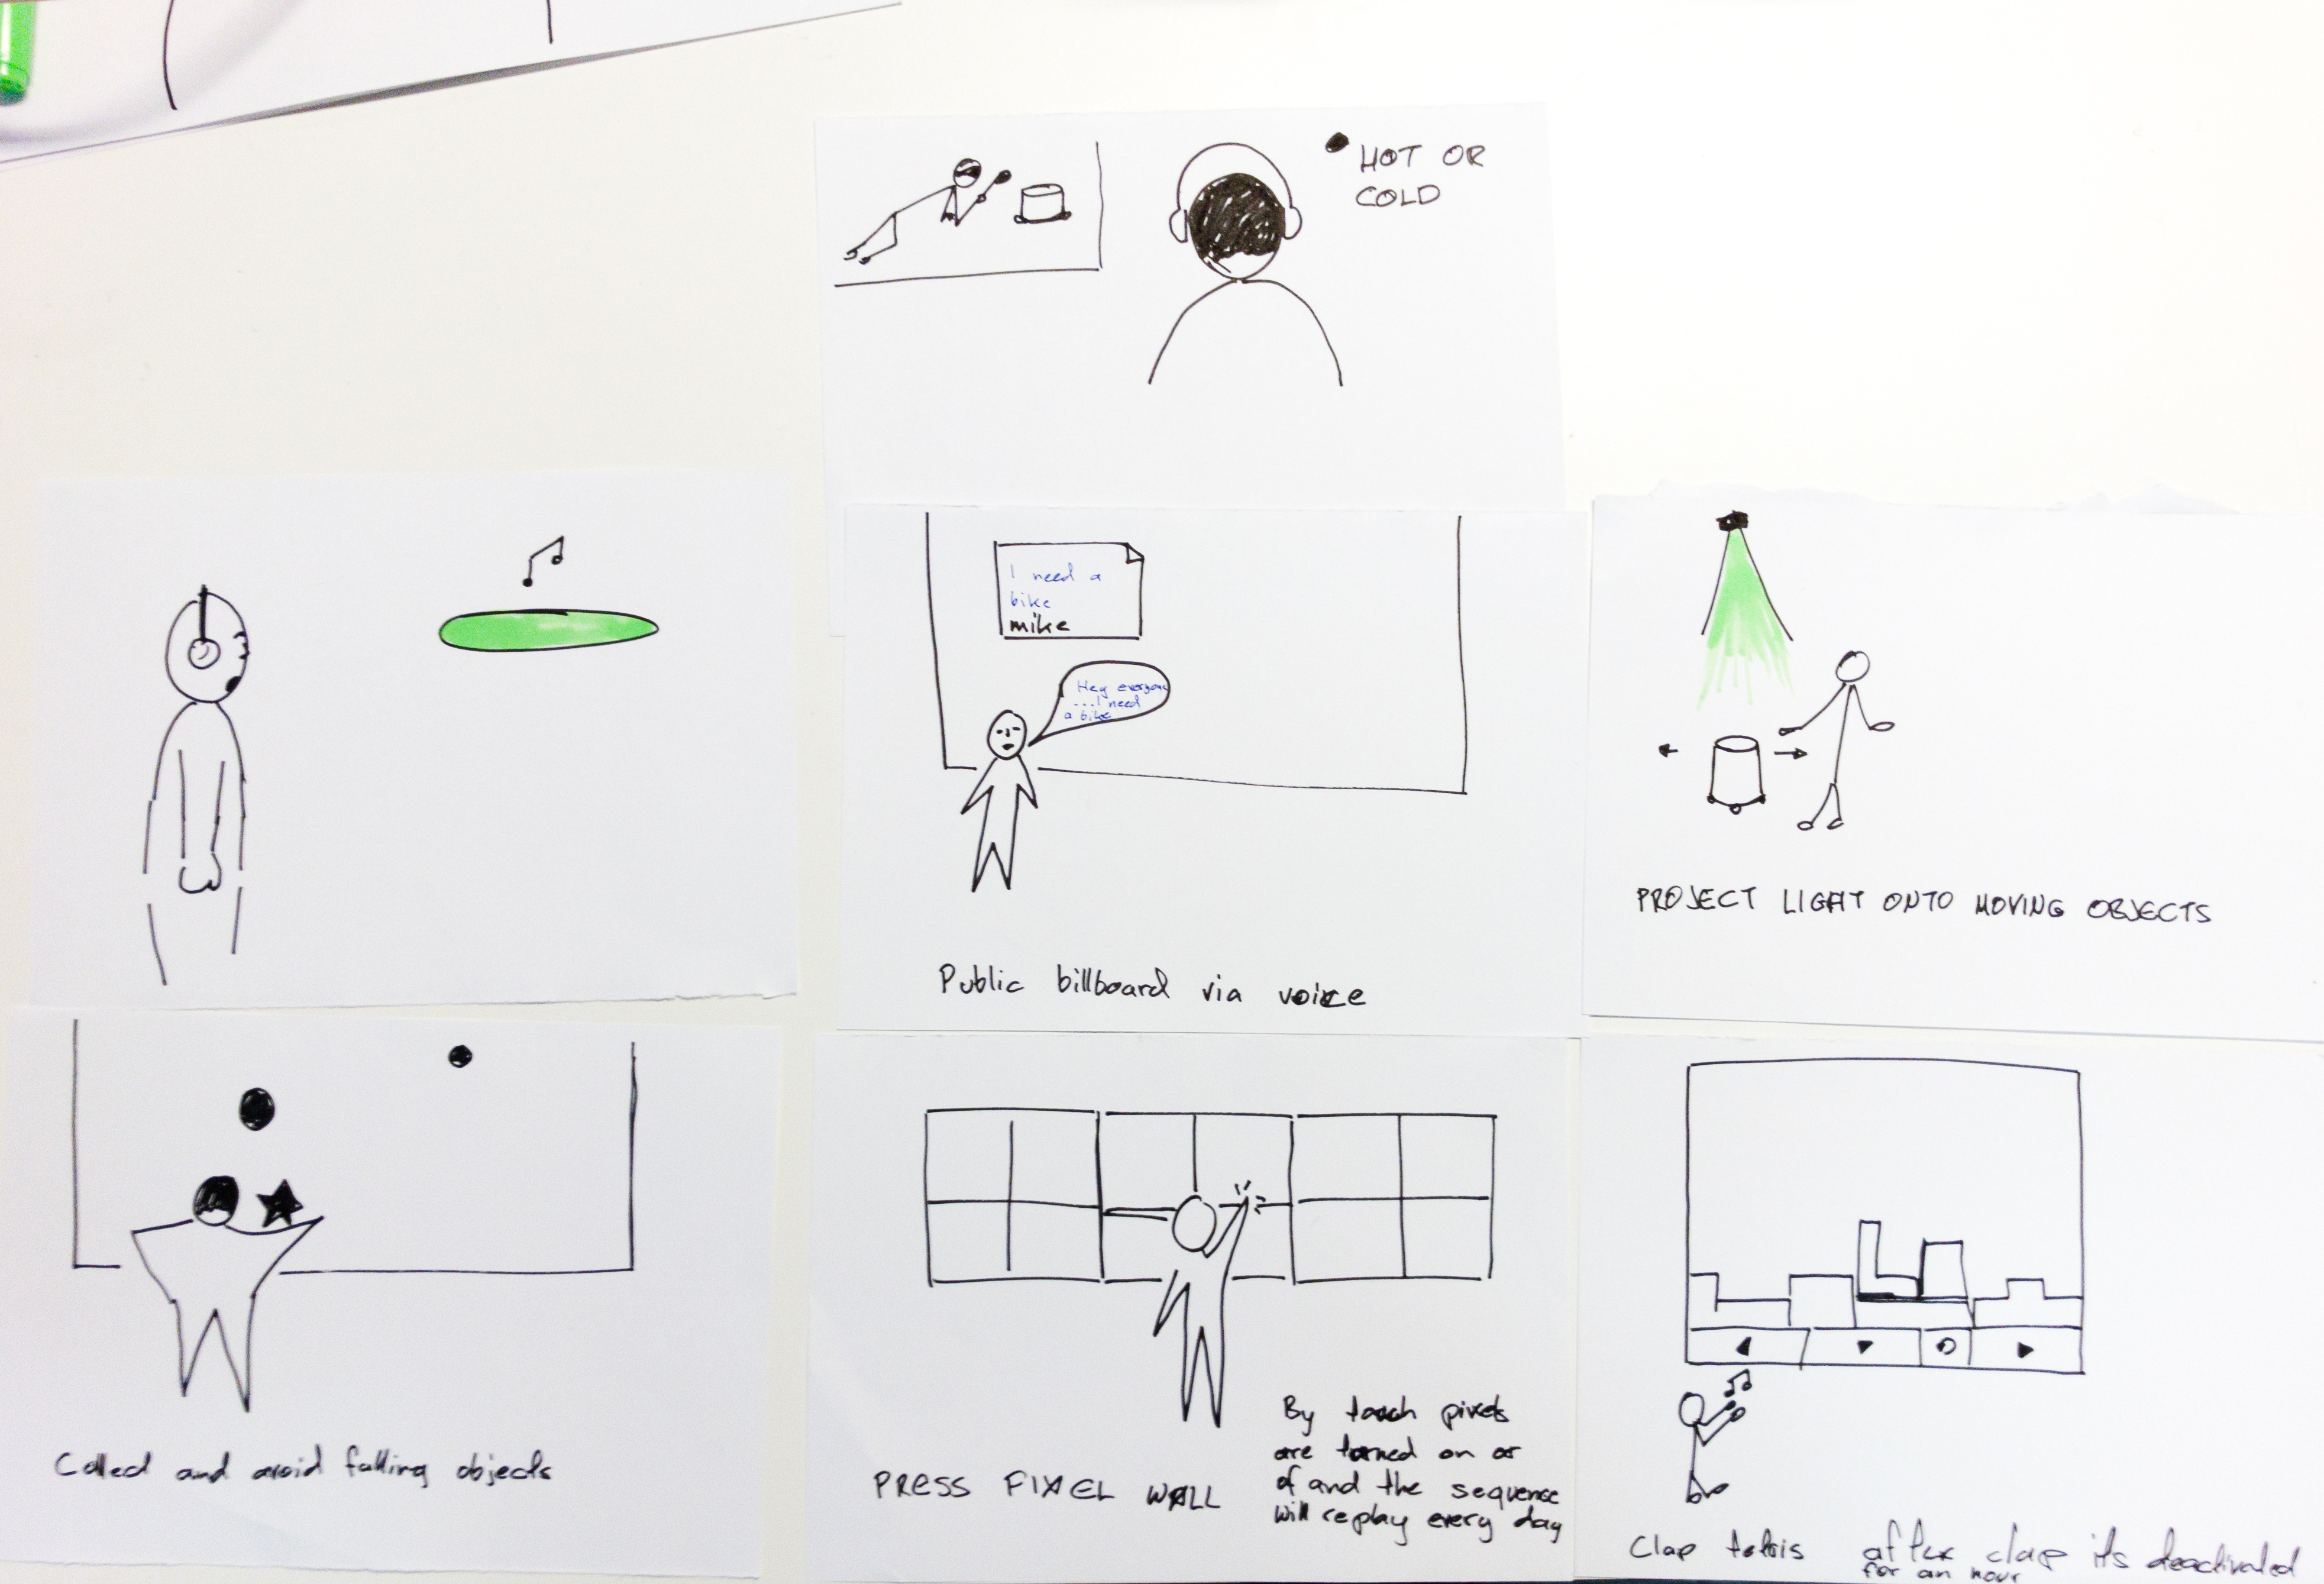 HOT OR
COLD
I need a
bike
mike
Hey everyone
...I need
a bike
Public billboard via voice
PROJECT LIGHT ONTO MOVING OBJECTS
Collect and avoid falling objects
PRESS PIXEL WALL
By touch pixels
are turned on or
of and the sequence
will replay every day
Clap tetris
after clap its deactivated
for an hour